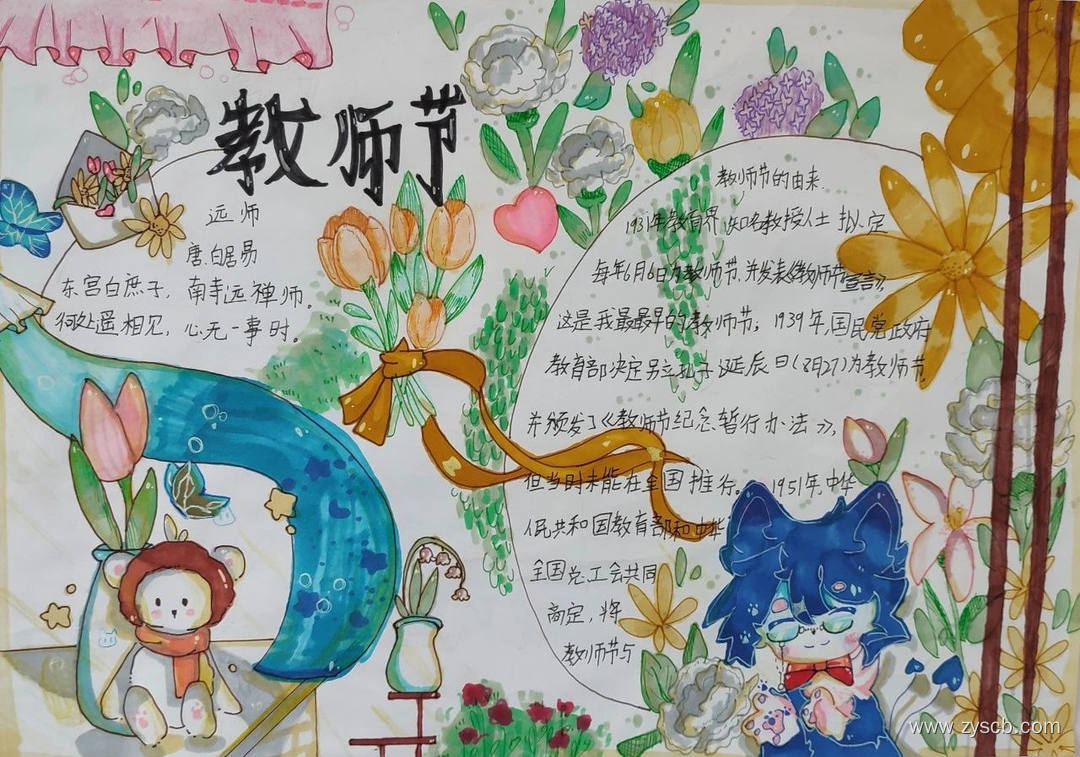 教师节
远师
唐.白居易
东宫白庶子，南寺远禅师。
何处遥相见，心无一事时。
教师节的由来.
1931年教育界知名教授人士拟定
每年6月6日为教师节,并发表《教师节宣言》,
这是我最最早的教师节，1939年,国民党政府
教育部决定另立孔子诞辰日(8月27)为教师节,
并颁发了《教师节纪念暂行办法》,
但当时未能在全国推行。1951年,中华
人民共和国教育部和中华
全国总工会共同
商定，将
教师节与
www.zyscb.com